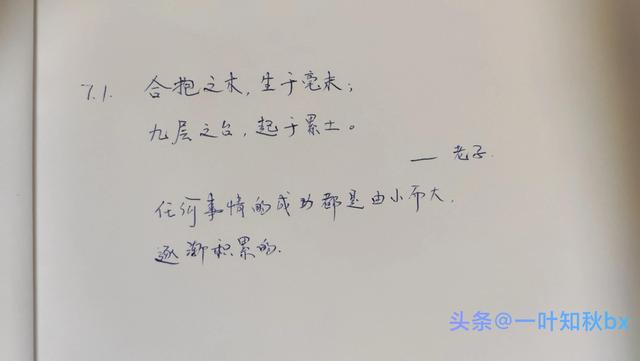 7.1. 合抱之木，生于毫末；
九层之台，起于累土。
— 老子.
任何事情的成功都是由小而大，
逐渐积累的.
头条@一叶知秋bx